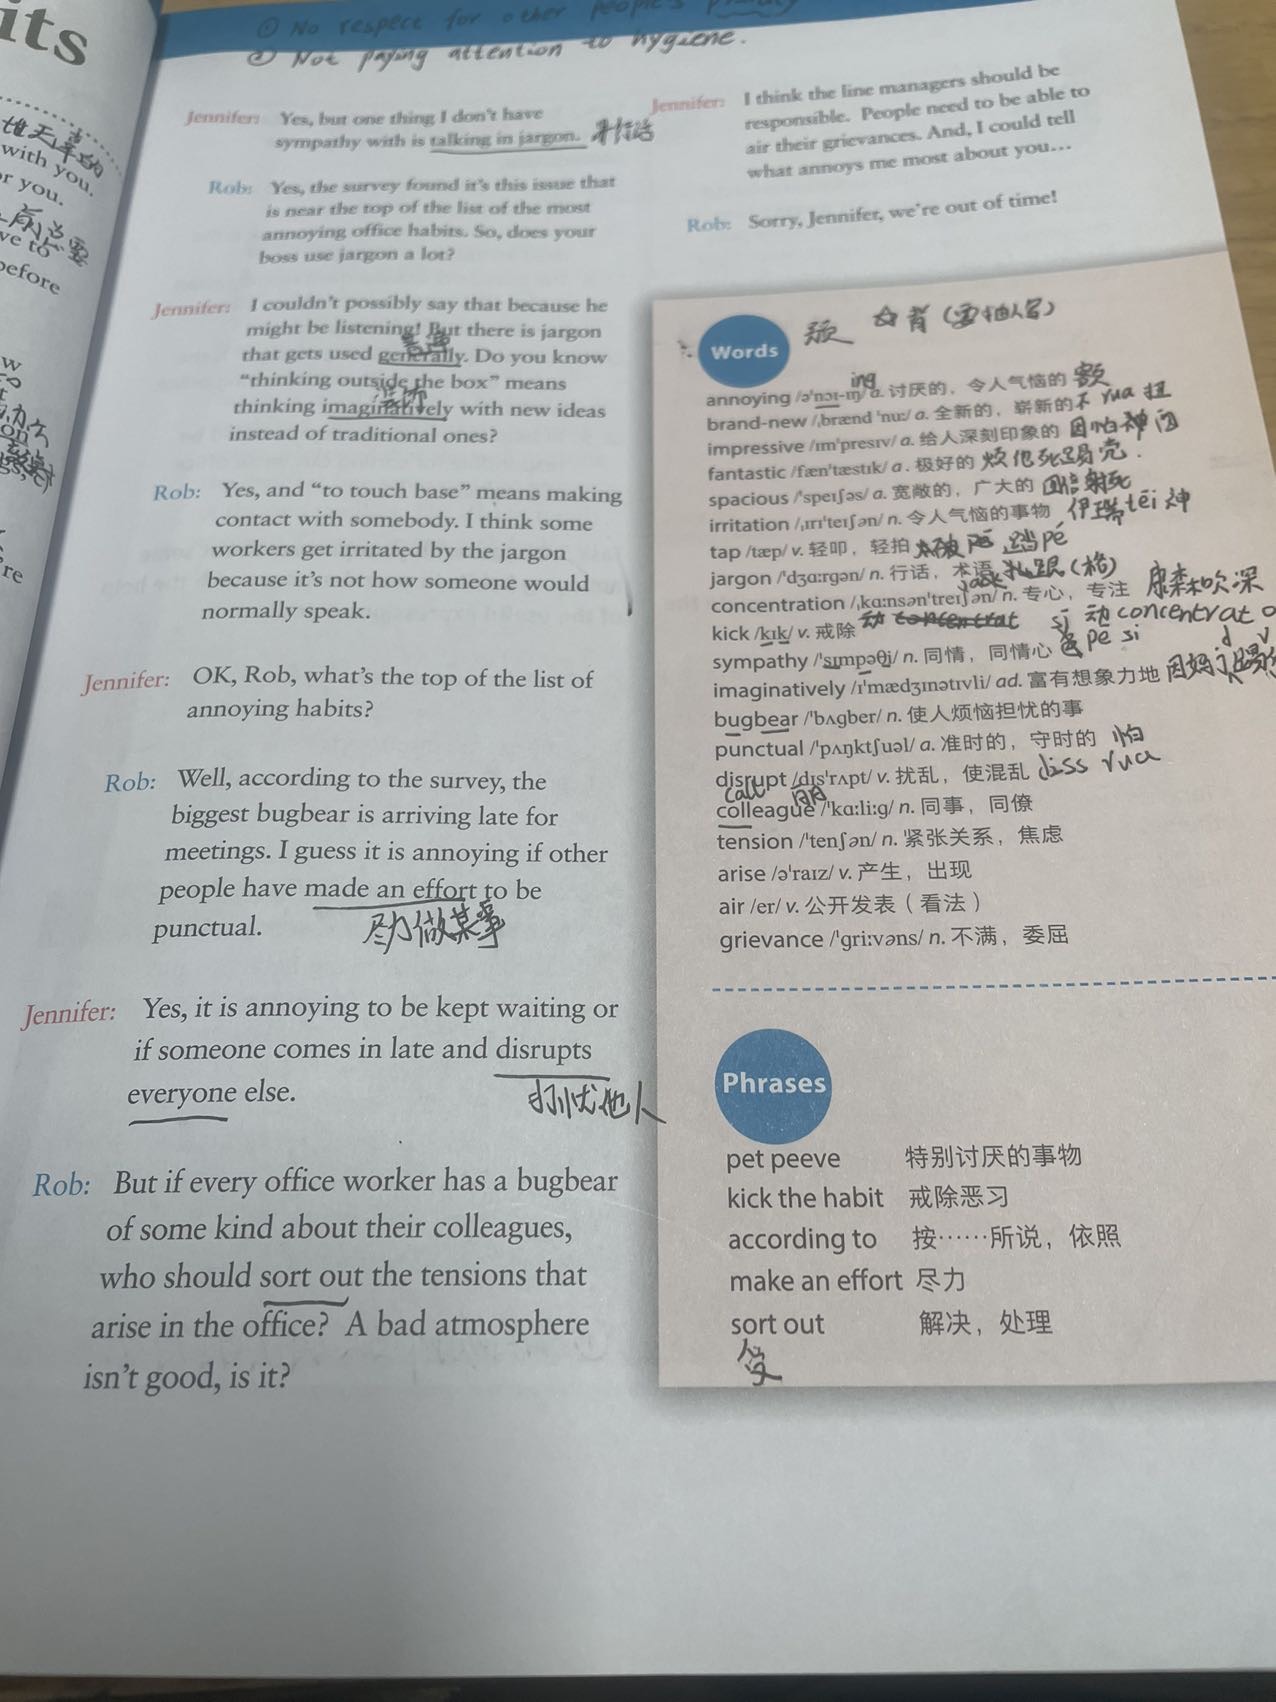 its
with you.
or you.
ve to
before
w
on
re
① No respect for other people's privacy
② Not paying attention to hygiene.
Jennifer: Yes, but one thing I don't have
sympathy with is talking in jargon.
Rob: Yes, the survey found it's this issue that
is near the top of the list of the most
annoying office habits. So, does your
boss use jargon a lot?
Jennifer: I couldn't possibly say that because he
might be listening! But there is jargon
that gets used generally. Do you know
“thinking outside the box” means
thinking imaginatively with new ideas
instead of traditional ones?
Rob: Yes, and “to touch base” means making
contact with somebody. I think some
workers get irritated by the jargon
because it's not how someone would
normally speak.
Jennifer: OK, Rob, what's the top of the list of
annoying habits?
Rob: Well, according to the survey, the
biggest bugbear is arriving late for
meetings. I guess it is annoying if other
people have made an effort to be
punctual.
尽力做某事
Jennifer: Yes, it is annoying to be kept waiting or
if someone comes in late and disrupts
everyone else.
扰他人
Rob: But if every office worker has a bugbear
of some kind about their colleagues,
who should sort out the tensions that
arise in the office? A bad atmosphere
isn't good, is it?
Jennifer: I think the line managers should be
responsible. People need to be able to
air their grievances. And, I could tell
what annoys me most about you…
Rob: Sorry, Jennifer, we're out of time!
Words
ing
annoying /ə'nɔɪ-ɪŋ/ a. 讨厌的，令人气恼的 额
brand-new /ˌbrænd 'nuː/ a. 全新的，崭新的 不rua扭
impressive /ɪm'presɪv/ a. 给人深刻印象的 因怕神
fantastic /fæn'tæstɪk/ a. 极好的 烦他死踢壳.
spacious /'speɪʃəs/ a. 宽敞的，广大的
irritation /ˌɪrɪ'teɪʃən/ n. 令人气恼的事物 伊瑞tēi神
tap /tæp/ v. 轻叩，轻拍 踏pé
jargon /'dʒɑːrgən/ n. 行话，术语 扎跟(格)
concentration /ˌkɑːnsən'treɪʃən/ n. 专心，专注 康森吹深
kick /kɪk/ v. 戒除 动 concentrat
sympathy /'sɪmpəθi/ n. 同情，同情心 pe si
imaginatively /ɪ'mædʒɪnətɪvli/ ad. 富有想象力地
bugbear /'bʌgber/ n. 使人烦恼担忧的事
punctual /'pʌŋktʃuəl/ a. 准时的，守时的 怕
disrupt /dɪs'rʌpt/ v. 扰乱，使混乱 diss rua
call
colleague /'kɑːliːg/ n. 同事，同僚
tension /'tenʃən/ n. 紧张关系，焦虑
arise /ə'raɪz/ v. 产生，出现
air /er/ v. 公开发表（看法）
grievance /'griːvəns/ n. 不满，委屈
Phrases
pet peeve 特别讨厌的事物
kick the habit 戒除恶习
according to 按……所说，依照
make an effort 尽力
sort out 解决，处理